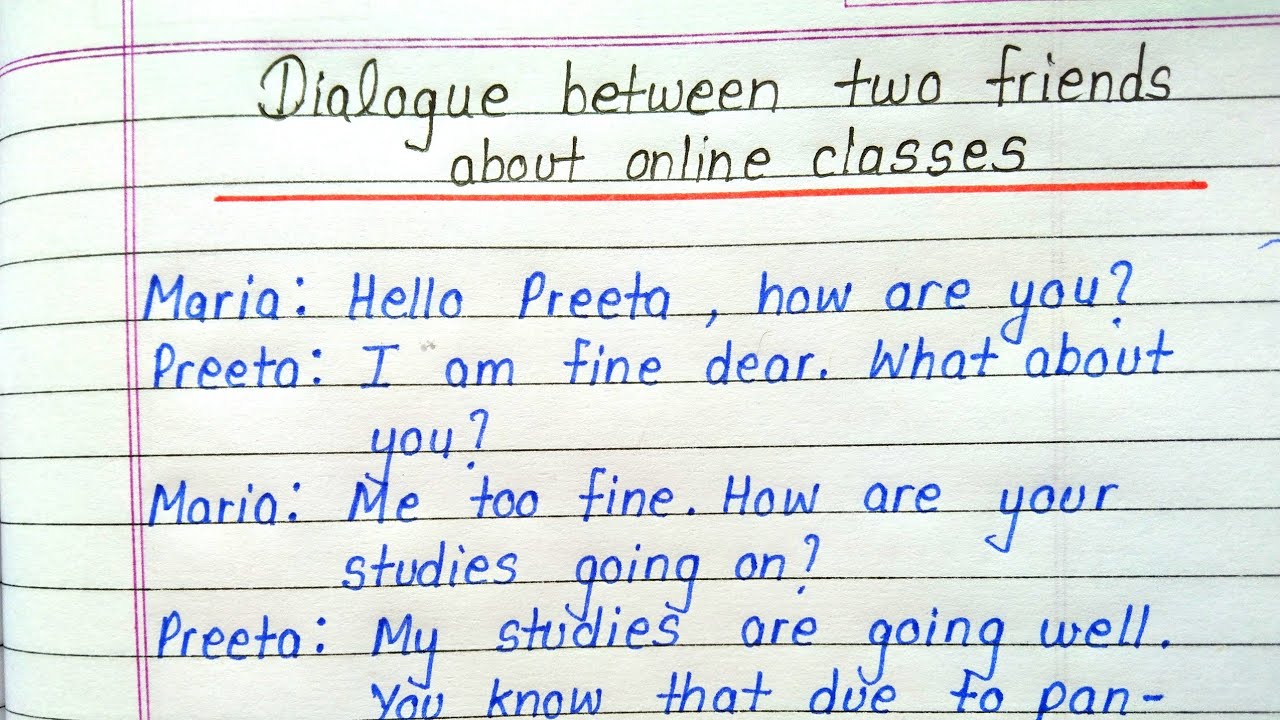 Dialogue between two friends
about online classes
Maria: Hello Preeta, how are you?
Preeta: I am fine dear. What about
you?
Maria: Me too fine. How are your
studies going on?
Preeta: My studies are going well.
You know that due to pan-